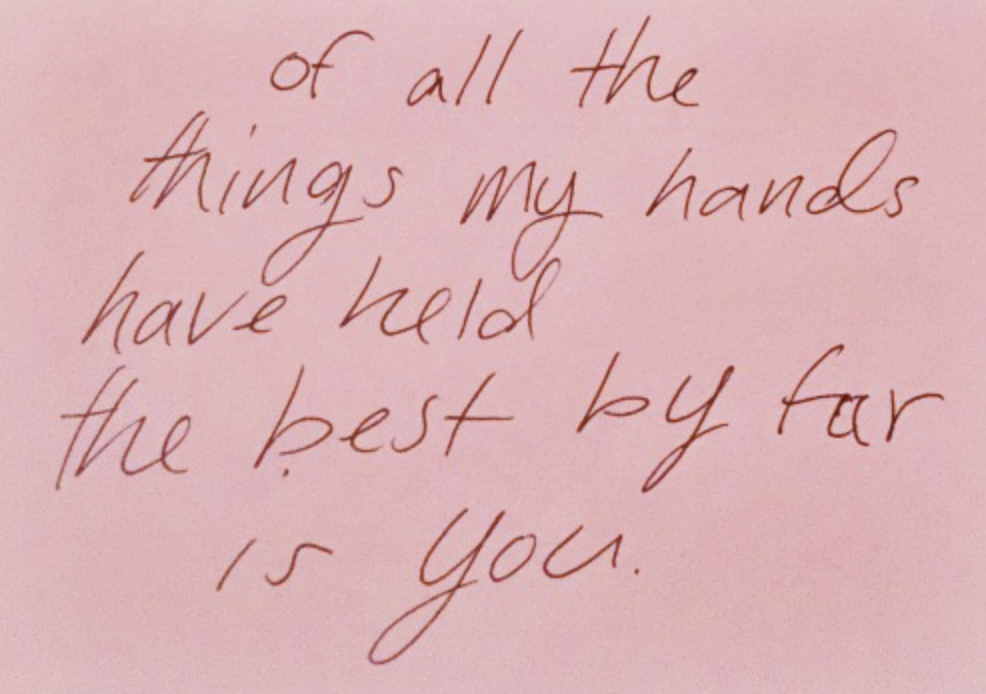 of all the
things my hands
have held
the best by far
is you.